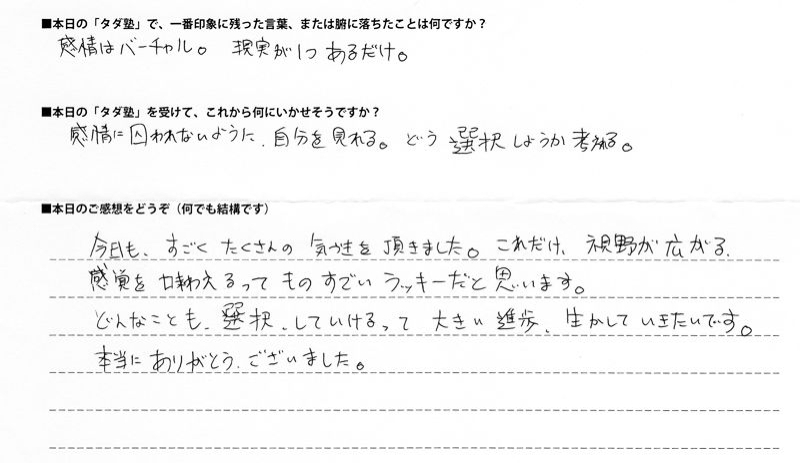 ■本日の「タダ塾」で、一番印象に残った言葉、または腑に落ちたことは何ですか？
感情はバーチャル。 現実が1つ あるだけ。
■本日の「タダ塾」を受けて、これから何にいかせそうですか？
感情に囚われないように、自分を見れる。どう 選択しようか 考える。
■本日のご感想をどうぞ（何でも結構です）
今日も、すごく たくさんの 気づきを 頂きました。これだけ、視野が広がる、
感覚を 味わえるって ものすごい ラッキーだと 思います。
どんなことも、選択、していけるって 大きい 進歩、生かして いきたいです。
本当に ありがとう、ございました。